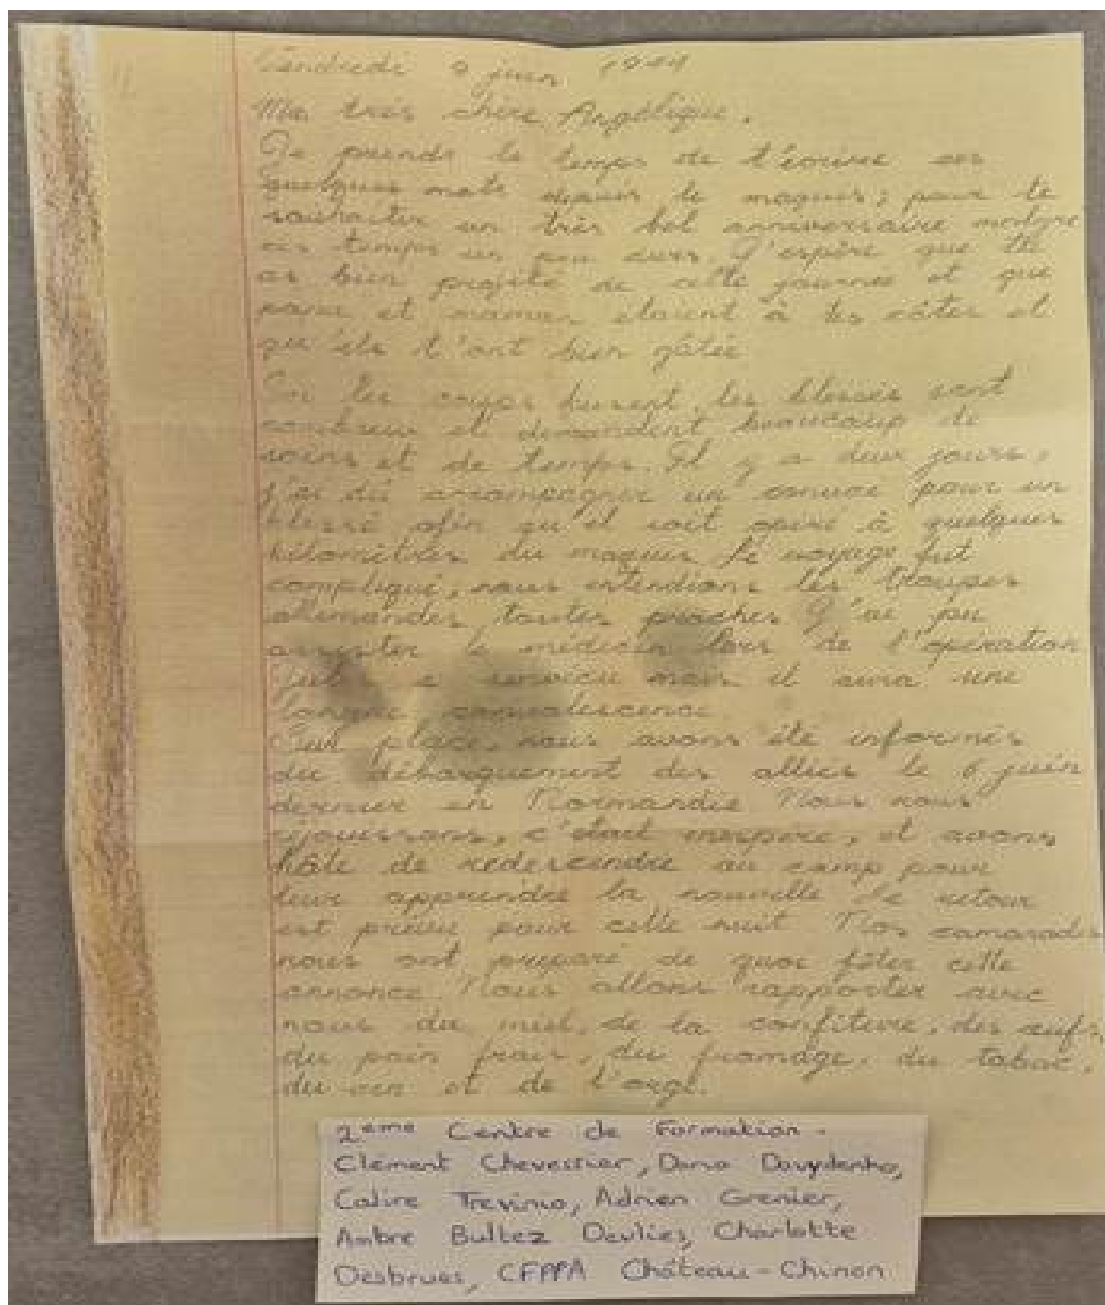 Vendredi 9 juin 1944
Ma très chère Angélique,
Je prends le temps de t'écrire ces
quelques mots depuis le maquis; pour te
souhaiter un très bel anniversaire malgré
ces temps un peu durs. J'espère que tu
as bien profité de cette journée et que
papa et maman étaient à tes côtés et
qu'ils t'ont bien gâtée
Ici les corps fusent, les blessés sont
nombreux et demandent beaucoup de
soins et de temps. Il y a deux jours,
j'ai dû accompagner un convoi pour un
blessé afin qu'il soit opéré à quelques
kilomètres du maquis le voyage fut
compliqué, nous entendions les troupes
allemandes toutes proches J'ai pu
assister le médecin lors de l'opération
a survécu mais il aura une
longue convalescence
Sur place, nous avons été informés
du débarquement des alliés le 6 juin
dernier en Normandie Nous nous
réjouissons, c'était inespéré, et avons
hâte de redescendre au camp pour
leur apprendre la nouvelle le retour
est prévu pour cette nuit Nos camarades
nous ont préparé de quoi fêter cette
annonce. Nous allons rapporter avec
nous du miel, de la confiture, des œufs,
du pain frais, du fromage, du tabac,
du vin et de l'orge.
2ème Centre de Formation.
Clément Chevessier, Daria Davydenko,
Calire Trevino, Adrien Grenier,
Ambre Bultez Deulies, Charlotte
Desbrues, CFPPA Château-Chinon